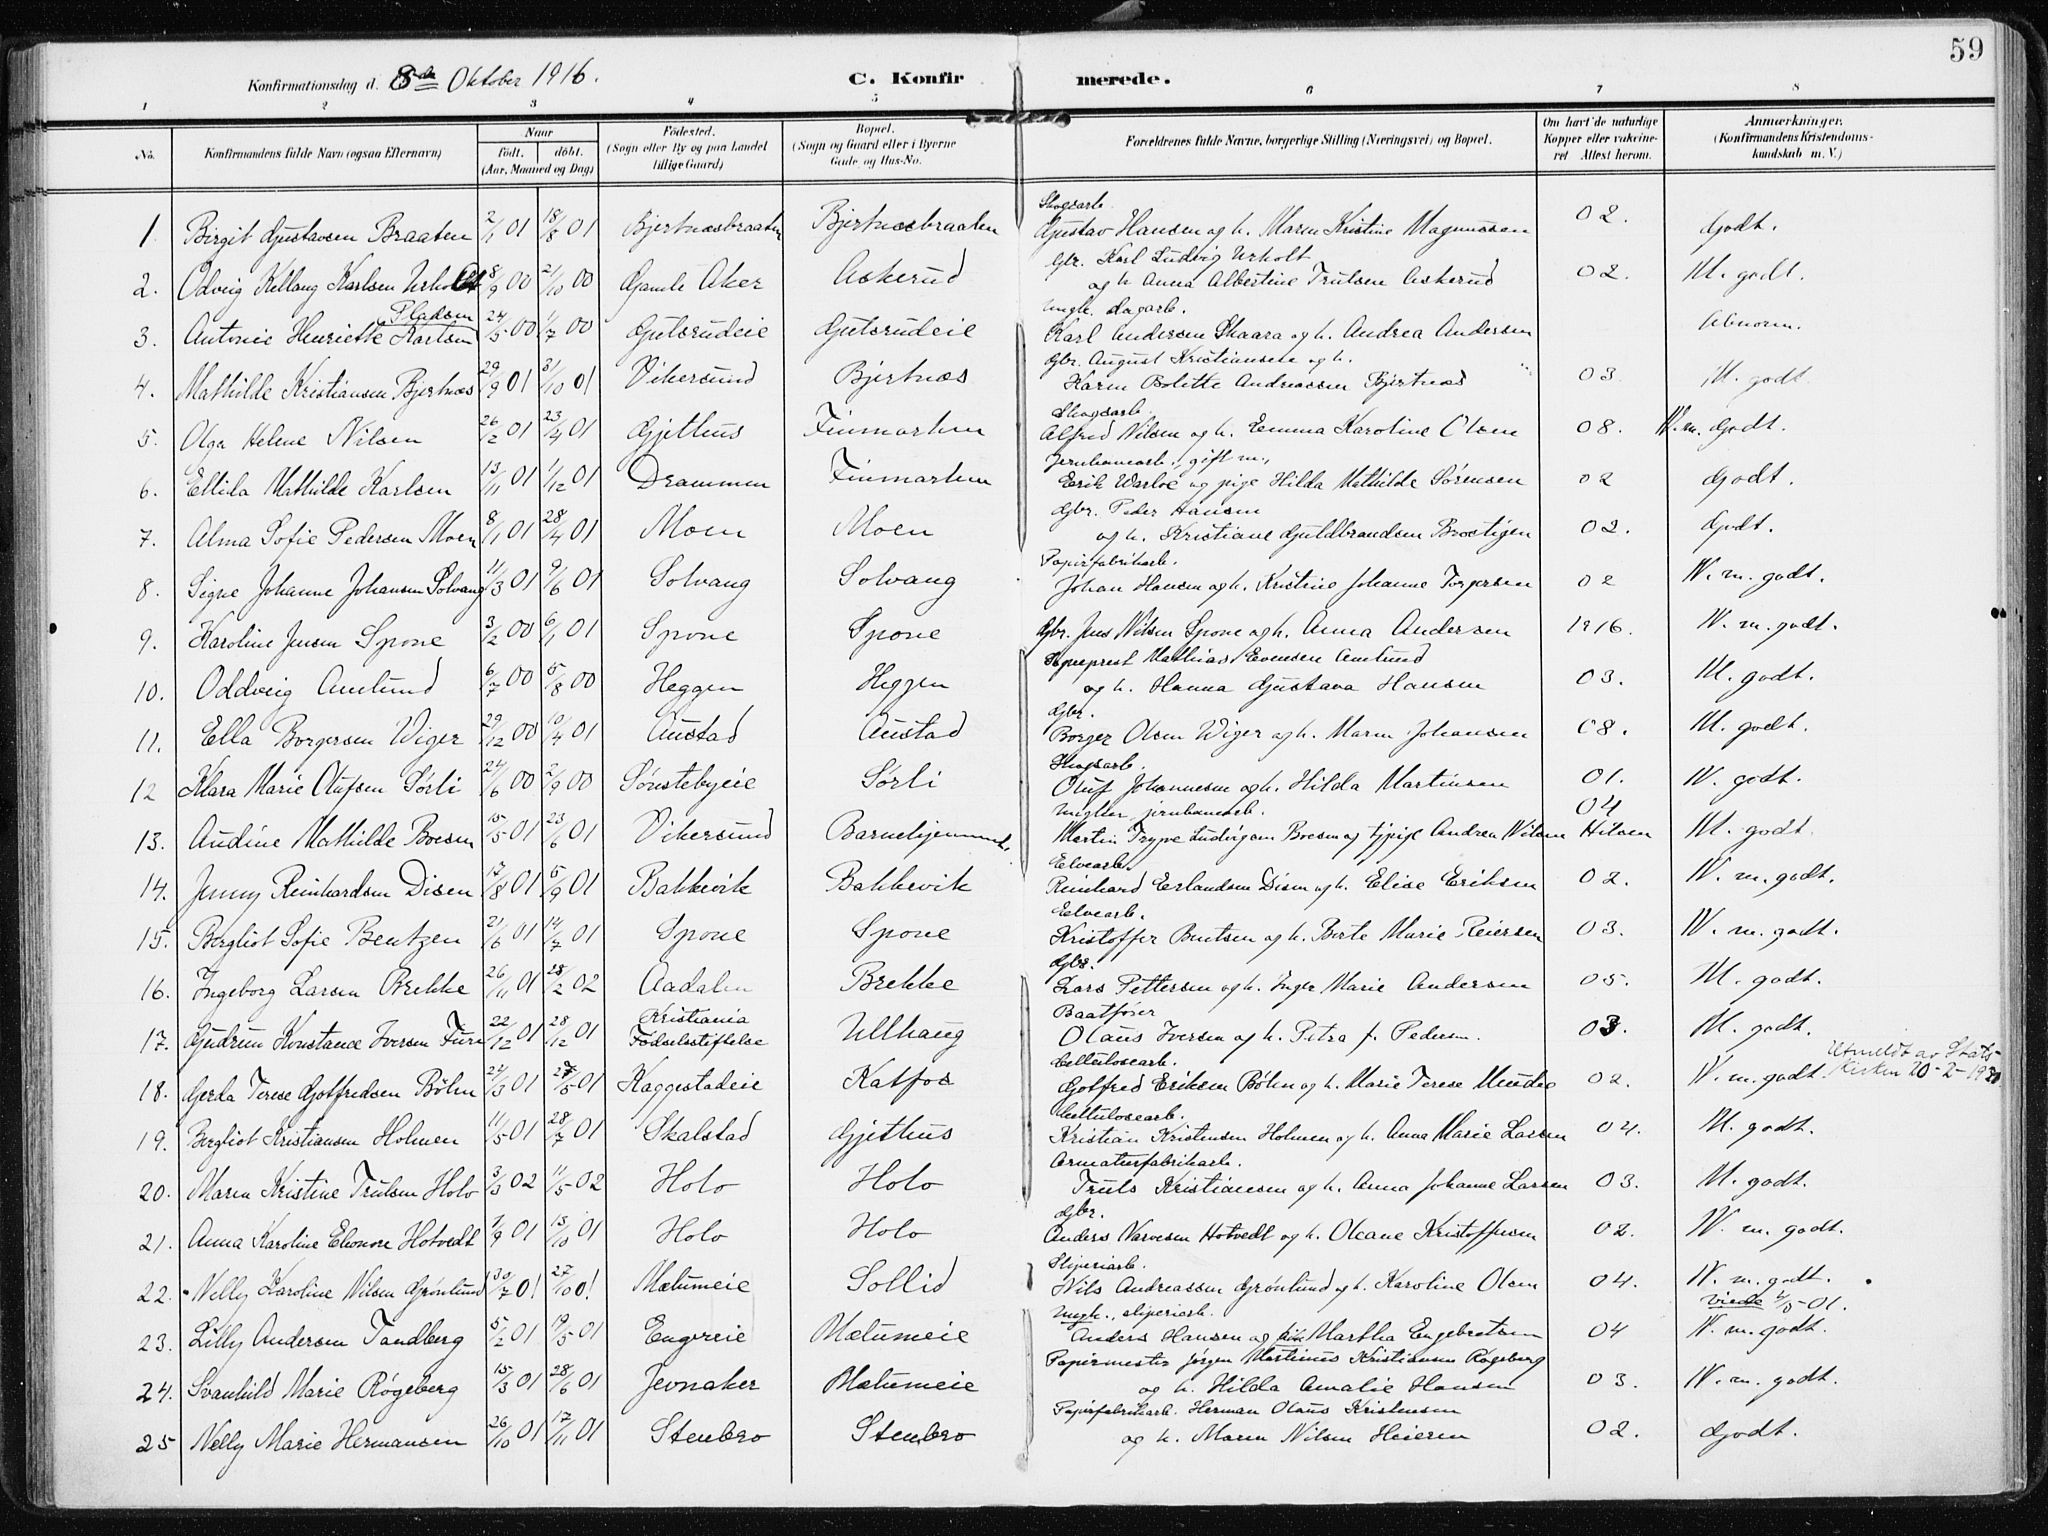 59
Konfirmationsdag d. 8de Oktober 1916.
C. Konfirmerede.
1 2 3 4 5 6 7 8
No. Konfirmandens fulde Navn (ogsaa Efternavn) Naar født. døbt. (Aar, Maaned og Dag) Fødested. (Sogn eller By og paa Landet tillige Gaard) Bopæl. (Sogn og Gaard eller i Byerne Gade og Hus-No. Forældrenes fulde Navne, borgerlige Stilling (Næringsvei) og Bopæl. Om havt de naturlige Kopper eller vakcineret Attest herom. Anmærkninger. (Konfirmandens Kristendomskundskab m. V.)
Skogsarb.
1. Birgit Gustavsen Braaten 2/1 01 18/8 01 Bjertnæsbraaten Bjertnæsbraaten Gustav Hansen og h. Maren Kristine Magnussen 02. Godt.
Gbr. Karl Ludvig Urholt
2. Odveig Kellaug Karlsen Urholt 8/9 00 21/10 00 Gamle Aker Askerud og h. Anna Albertine Trulsen Askerud 02. M. godt.
Pladsen ungk. dagarb.
3. Antonie Henriette Karlsen 24/5 00 1/7 00 Gutsrudeie Gutsrudeie Karl Andersen Skaara og h. Andrea Andersen Abnorm.
Gbr. August Kristiansen og h.
4. Mathilde Kristiansen Bjertnæs 29/9 01 31/10 01 Vikersund Bjertnæs Karen Bolette Andreassen Bjertnæs 03. M. godt
Skogsarb.
5. Olga Helene Nilsen 26/2 01 23/4 01 Gjethus Finmarken Alfred Nilsen og h. Emma Karoline Olsen 08. N. m. Godt.
Jernbanearb., gift m.,
6. Ellida Mathilde Karlsen 13/11 01 1/12 01 Drammen Finmarken Erik Warloe og pige Hilda Mathilde Sørensen 02 Godt.
Gbr. Peder Hansen
7. Alma Sofie Pedersen Moen 8/1 01 28/4 01 Moen Moen og h. Kristiane Guldbrandsen Brostigen 02. Godt.
Papirfabrikarb.
8. Signe Johanne Johansen Solvang 11/3 01 9/6 01 Solvang Solvang Johan Hansen og h. Kristine Johanne Torgersen 02 N. m. godt.
9. Karoline Jensen Spone 3/2 00 6/1 01 Spone Spone Gbr. Jens Nilsen Spone og h. Anna Andersen 1916. N. m. godt.
Sogneprest Mathias Evensen Amlund
10. Oddveig Amlund 6/7 00 5/8 00 Heggen Heggen og h. Hanna Gustava Hansen 03. M. godt.
Gbr.
11. Ella Borgersen Wiger 29/12 00 10/4 01 Austad Austad Borger Olsen Wiger og h. Maren Johansen 08. M. godt.
Skogsarb.
12 Klara Marie Olufsen Sørli 24/6 00 2/9 00 Sønstebyeie Sørli Oluf Johannesen og h. Hilda Martinsen 01. N. godt.
jernbanearb. 04
13. Audine Mathilde Boesen 15/5 01 23/6 01 Vikersund Barnehjemmet. Martin Trygve Boesen Andrea Nilsen M. godt.
Elvearb.
14. Jenny Reinhardsen Disen 17/8 01 5/9 01 Bakkevik Bakkevik Reinhard Erlandsen Disen og h. Elise Eriksen 02. N. m. godt.
Elvearb.
15. Bergliot Sofie Bentzen 21/6 01 14/7 01 Spone Spone Kristoffer Bentsen og h. Berte Marie Reiersen 03. N. m. godt.
Gbr.
16. Ingeborg Larsen Brekke 26/11 01 28/2 02 Aadalen Brekke Lars Pettersen og h. Inger Marie Andersen 05. M. godt.
Kristiania Baatfører
17. Gudrun Konstance Iversen Furu 22/12 01 28/12 01 Fødselsstiftelse Ullhaug Olaus Iversen og h. Petra f. Pedersen. 03. M. godt.
Cellulosearb. Utmeldt av Stats-
18. Gerda Terese Gotfredsen Bøhn 24/3 01 27/5 01 Kaggestadeie Katfos Gotfred Eriksen Bøhn og h. Marie Terese 02. N. m. godt. kirken 20-2-1930
Cellulosearb.
19. Bergliot Kristiansen Holmen 11/5 01 28/7 01 Skalstad Gjethus Kristian Kristensen Holmen og h. Anna Marie Larsen 04. M. godt.
Armaturfabrikarb.
20. Maren Kristine Trulsen Holo 3/3 02 11/5 02 Holo Holo Truls Kristiansen og h. Anna Johanne Larsen 03. M. godt.
Gbr.
21. Anna Karoline Elenore Hotvedt 7/9 01 13/10 01 Holo Holo Anders Narvesen Hotvedt og h. Oleane Kristoffersen 02. N. m. godt.
Sliperiarb.
22. Nelly Karoline Nilsen Grønlund 30/7 01 27/10 01 Mælumeie Sollid Nils Andreassen Grønlund og h. Karoline Olsen 04. N. m. godt.
ungk. sliperiarb. viede 4/5-01.
23. Lilly Andersen Tandberg 5/2 01 19/5 01 Engereie Mælumeie Anders Hansen og pike Martha Engebretsen 04 N. m. godt.
Papirmester Jørgen Martinius Kristiansen Røgeberg
24. Svanhild Marie Røgeberg 15/3 01 28/6 01 Jevnaker Mælumeie og h. Hilda Amalie Hansen 03. N. m. godt.
Papirfabrikarb. Herman Olaus Kristensen
25 Nelly Marie Hermansen 26/10 01 17/11 01 Stenbro Stenbro og h. Maren Nilsen Heieren 02. Godt.